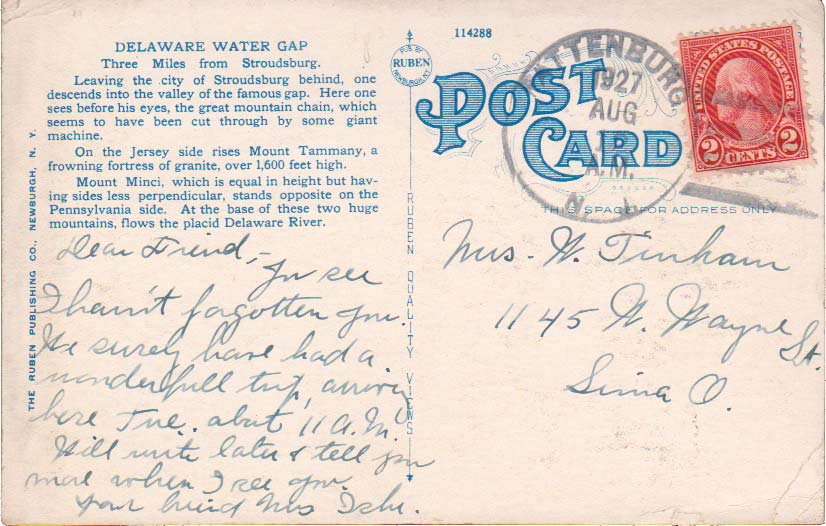 DELAWARE WATER GAP
Three Miles from Stroudsburg.
Leaving the city of Stroudsburg behind, one
descends into the valley of the famous gap. Here one
sees before his eyes, the great mountain chain, which
seems to have been cut through by some giant
machine.
On the Jersey side rises Mount Tammany, a
frowning fortress of granite, over 1,600 feet high.
Mount Minci, which is equal in height but hav-
ing sides less perpendicular, stands opposite on the
Pennsylvania side. At the base of these two huge
mountains, flows the placid Delaware River.
THE RUBEN PUBLISHING CO., NEWBURGH, N. Y.
Dear Friend,-
You see
I hain't forgotten you.
We surely have had a
wonderfull trip, arriving
here Tue. about 11 A.M.
Will write later & tell you
more when I see you.
Your friend Mrs
PUB BY
RUBEN
NEWBURGH, N.Y.
RUBEN QUALITY VIEWS
114288
POST
CARD
THIS SPACE FOR ADDRESS ONLY
TTENBURG
1927
AUG
A.M.
N. J.
UNITED STATES POSTAGE
WASHINGTON
2 CENTS 2
Mrs. W. Tinham
1145 W. Wayne St.
Lima O.